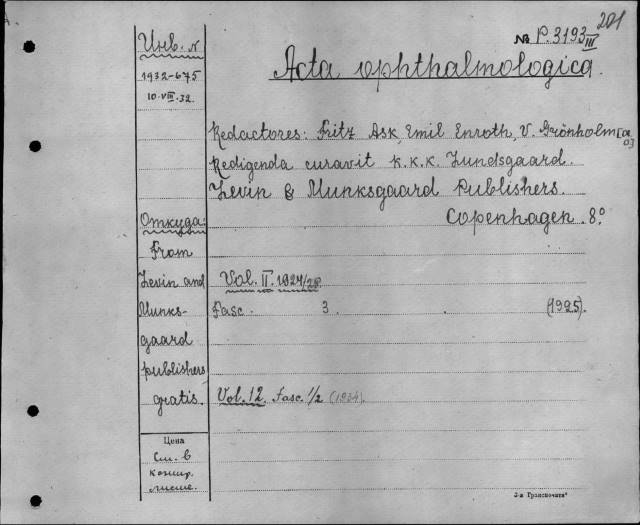 201
№ P.3193 III
Инв. №
1932-675
10.VIII.32.
Acta ophthalmologica.
Redactores: Fritz Ask, Emil Enroth, V. Grönholm [a.
o.]
Redigenda curavit K.K.K. Lundsgaard.
Levin & Munksgaard Publishers.
Copenhagen. 8°
Откуда:
From
Levin and
Munks-
gaard
publishers
gratis.
Vol. II. 1924/25.
Fasc. 3 (1925).
Vol. 12. Fasc. 1/2 (1934).
Цена
См. в
копир.
листе.
3-я Транспечать